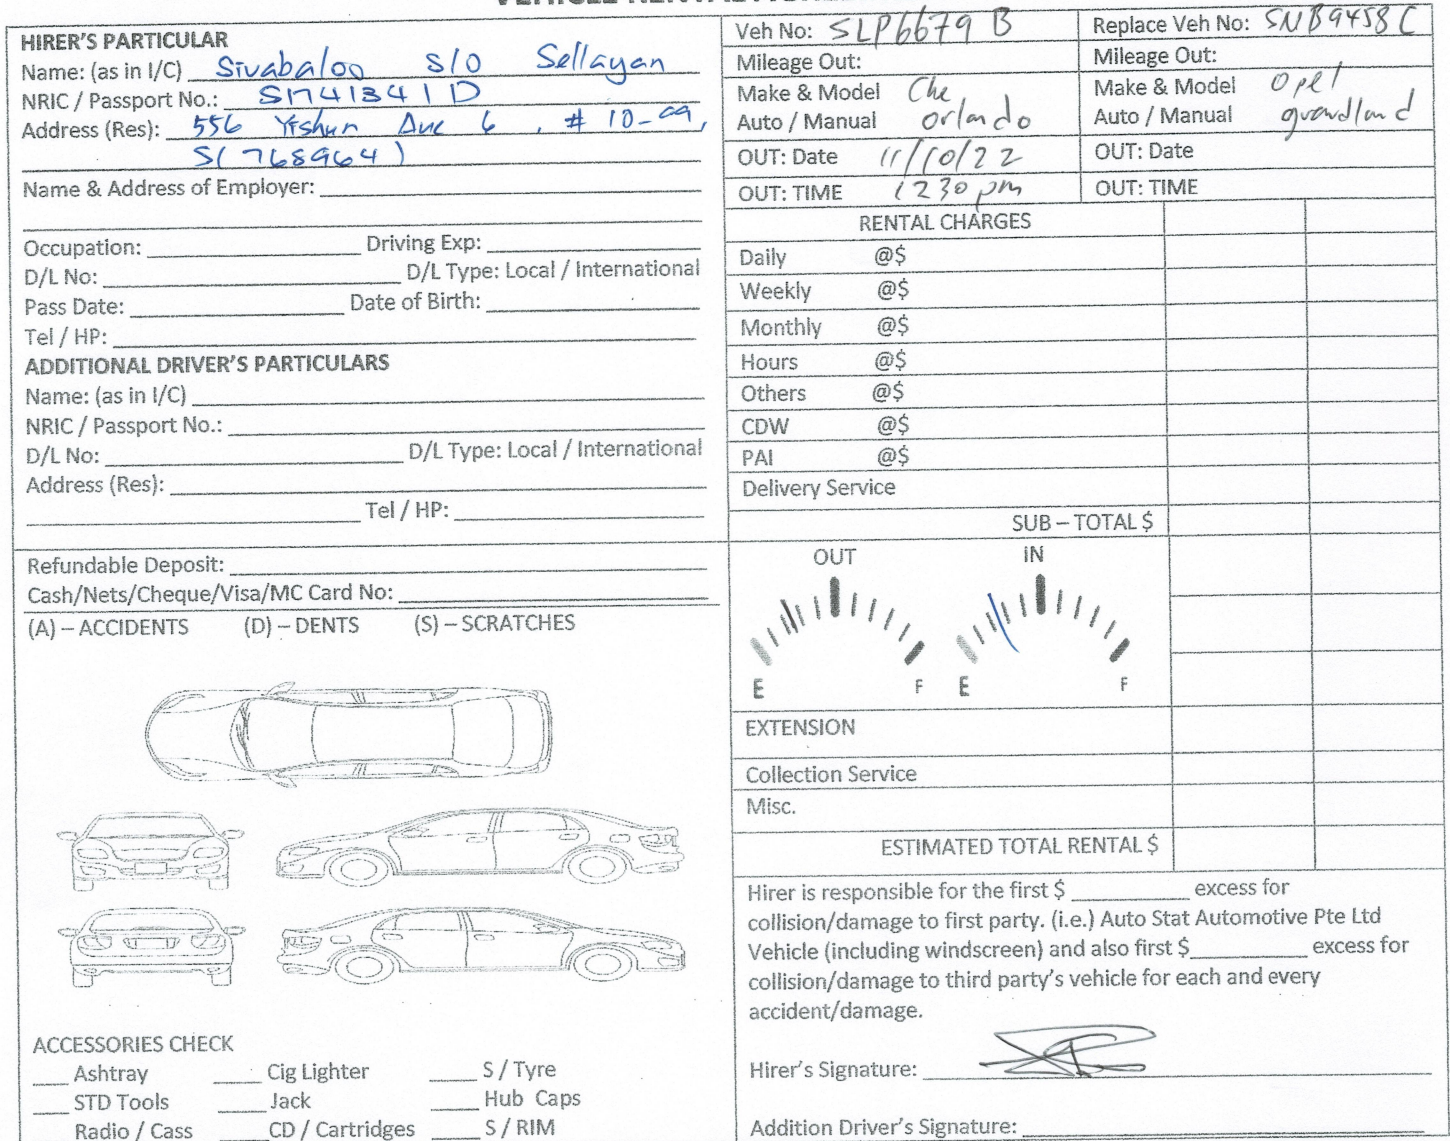 HIRER'S PARTICULAR
Name: (as in I/C) Sivabaloo S/O Sellayan
NRIC / Passport No.: S1741341D
Address (Res): 556 Yishun Ave 6, # 10-99,
S(768964)
Name & Address of Employer:
Occupation: Driving Exp:
D/L No: D/L Type: Local / International
Pass Date: Date of Birth:
Tel / HP:
ADDITIONAL DRIVER'S PARTICULARS
Name: (as in I/C)
NRIC / Passport No.:
D/L No: D/L Type: Local / International
Address (Res):
Tel / HP:
Refundable Deposit:
Cash/Nets/Cheque/Visa/MC Card No:
(A) – ACCIDENTS (D) – DENTS (S) – SCRATCHES
ACCESSORIES CHECK
Ashtray Cig Lighter S / Tyre
STD Tools Jack Hub Caps
Radio / Cass CD / Cartridges S / RIM
Veh No: SLP6679B Replace Veh No: SNB9458C
Mileage Out: Mileage Out:
Make & Model Che Make & Model Opel
Auto / Manual orlando Auto / Manual grandland
OUT: Date 11/10/22 OUT: Date
OUT: TIME 1230 pm OUT: TIME
RENTAL CHARGES
Daily @$
Weekly @$
Monthly @$
Hours @$
Others @$
CDW @$
PAI @$
Delivery Service
SUB – TOTAL $
OUT IN
E F E F
EXTENSION
Collection Service
Misc.
ESTIMATED TOTAL RENTAL $
Hirer is responsible for the first $ excess for
collision/damage to first party. (i.e.) Auto Stat Automotive Pte Ltd
Vehicle (including windscreen) and also first $ excess for
collision/damage to third party's vehicle for each and every
accident/damage.
Hirer's Signature:
Addition Driver's Signature: